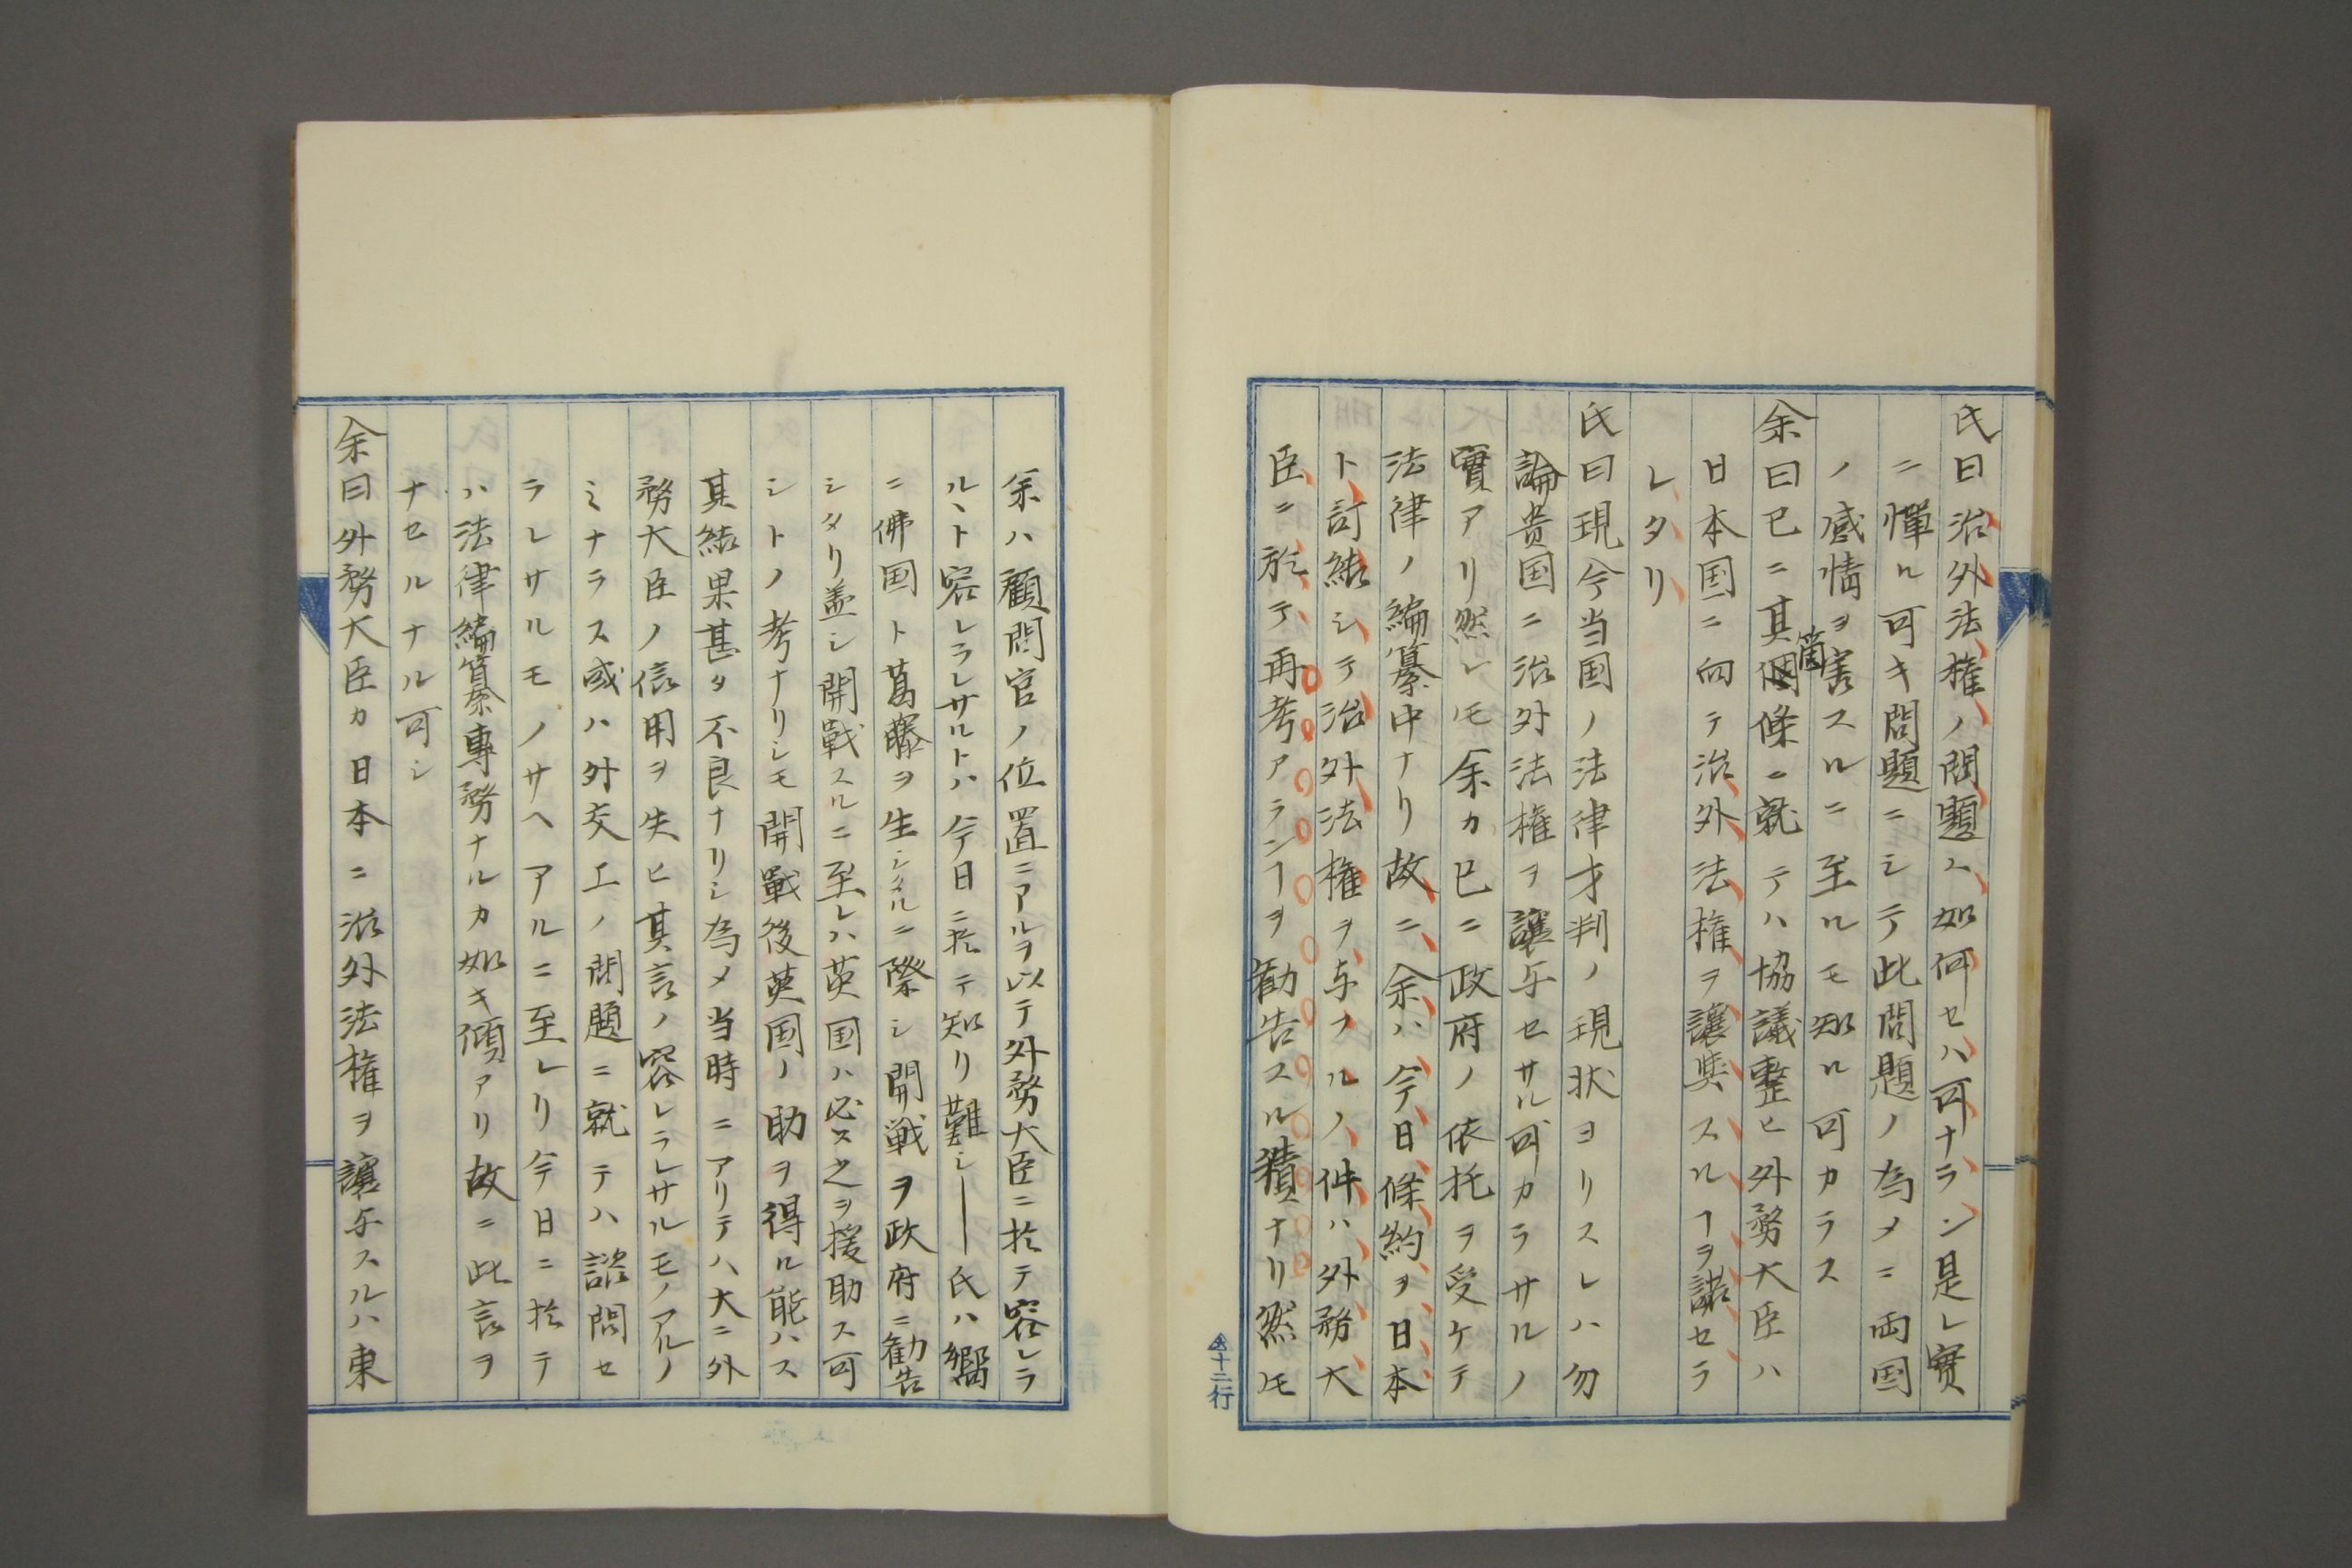 氏曰治外法権ノ問題ハ如何セハ可ナラン是レ実
ニ憚ル可キ問題ニシテ此問題ノ為メニ両国
ノ感情ヲ害スルニ至ルモ知ル可カラス
余曰已ニ其箇條ニ就テハ協議整ヒ外務大臣ハ
日本国ニ向テ治外法権ヲ讓與スルヿヲ諾セラ
レタリ
氏曰現今当国ノ法律才判ノ現状ヨリスレハ勿
論貴国ニ治外法権ヲ讓与セサル可カラサルノ
實アリ然レ𪜈余カ已ニ政府ノ依托ヲ受ケテ
法律ノ編纂中ナリ故ニ余ハ今日條約ヲ日本
ト訂結シテ治外法権ヲ与フルノ件ハ外務大
臣ニ於テ再考アランヿヲ勧告スル積ナリ然𪜈
全十二行
余ハ顧問官ノ位置ニアルヲ以テ外務大臣ニ於テ容レラ
ルヽト容レラレサルトハ今日ニ於テ知リ難シ――氏ハ嚮
ニ佛国ト葛藤ヲ生シタルニ際シ開戦ヲ政府ニ勧告
シタリ盖シ開戰スルニ至レハ英国ハ必ス之ヲ援助ス可
シトノ考ナリシモ開戰後英国ノ助ヲ得ル能ハス
其結果甚タ不良ナリシ為メ当時ニアリテハ大ニ外
務大臣ノ信用ヲ失ヒ其言ノ容レラレサルモノアルノ
ミナラス或ハ外交上ノ問題ニ就テハ諮問セ
ラレサルモノサヘアルニ至レリ今日ニ於テ
ハ法律編纂專務ナルカ如キ傾アリ故ニ此言ヲ
ナセルナル可シ
余曰外務大臣カ日本ニ治外法権ヲ讓与スルハ東